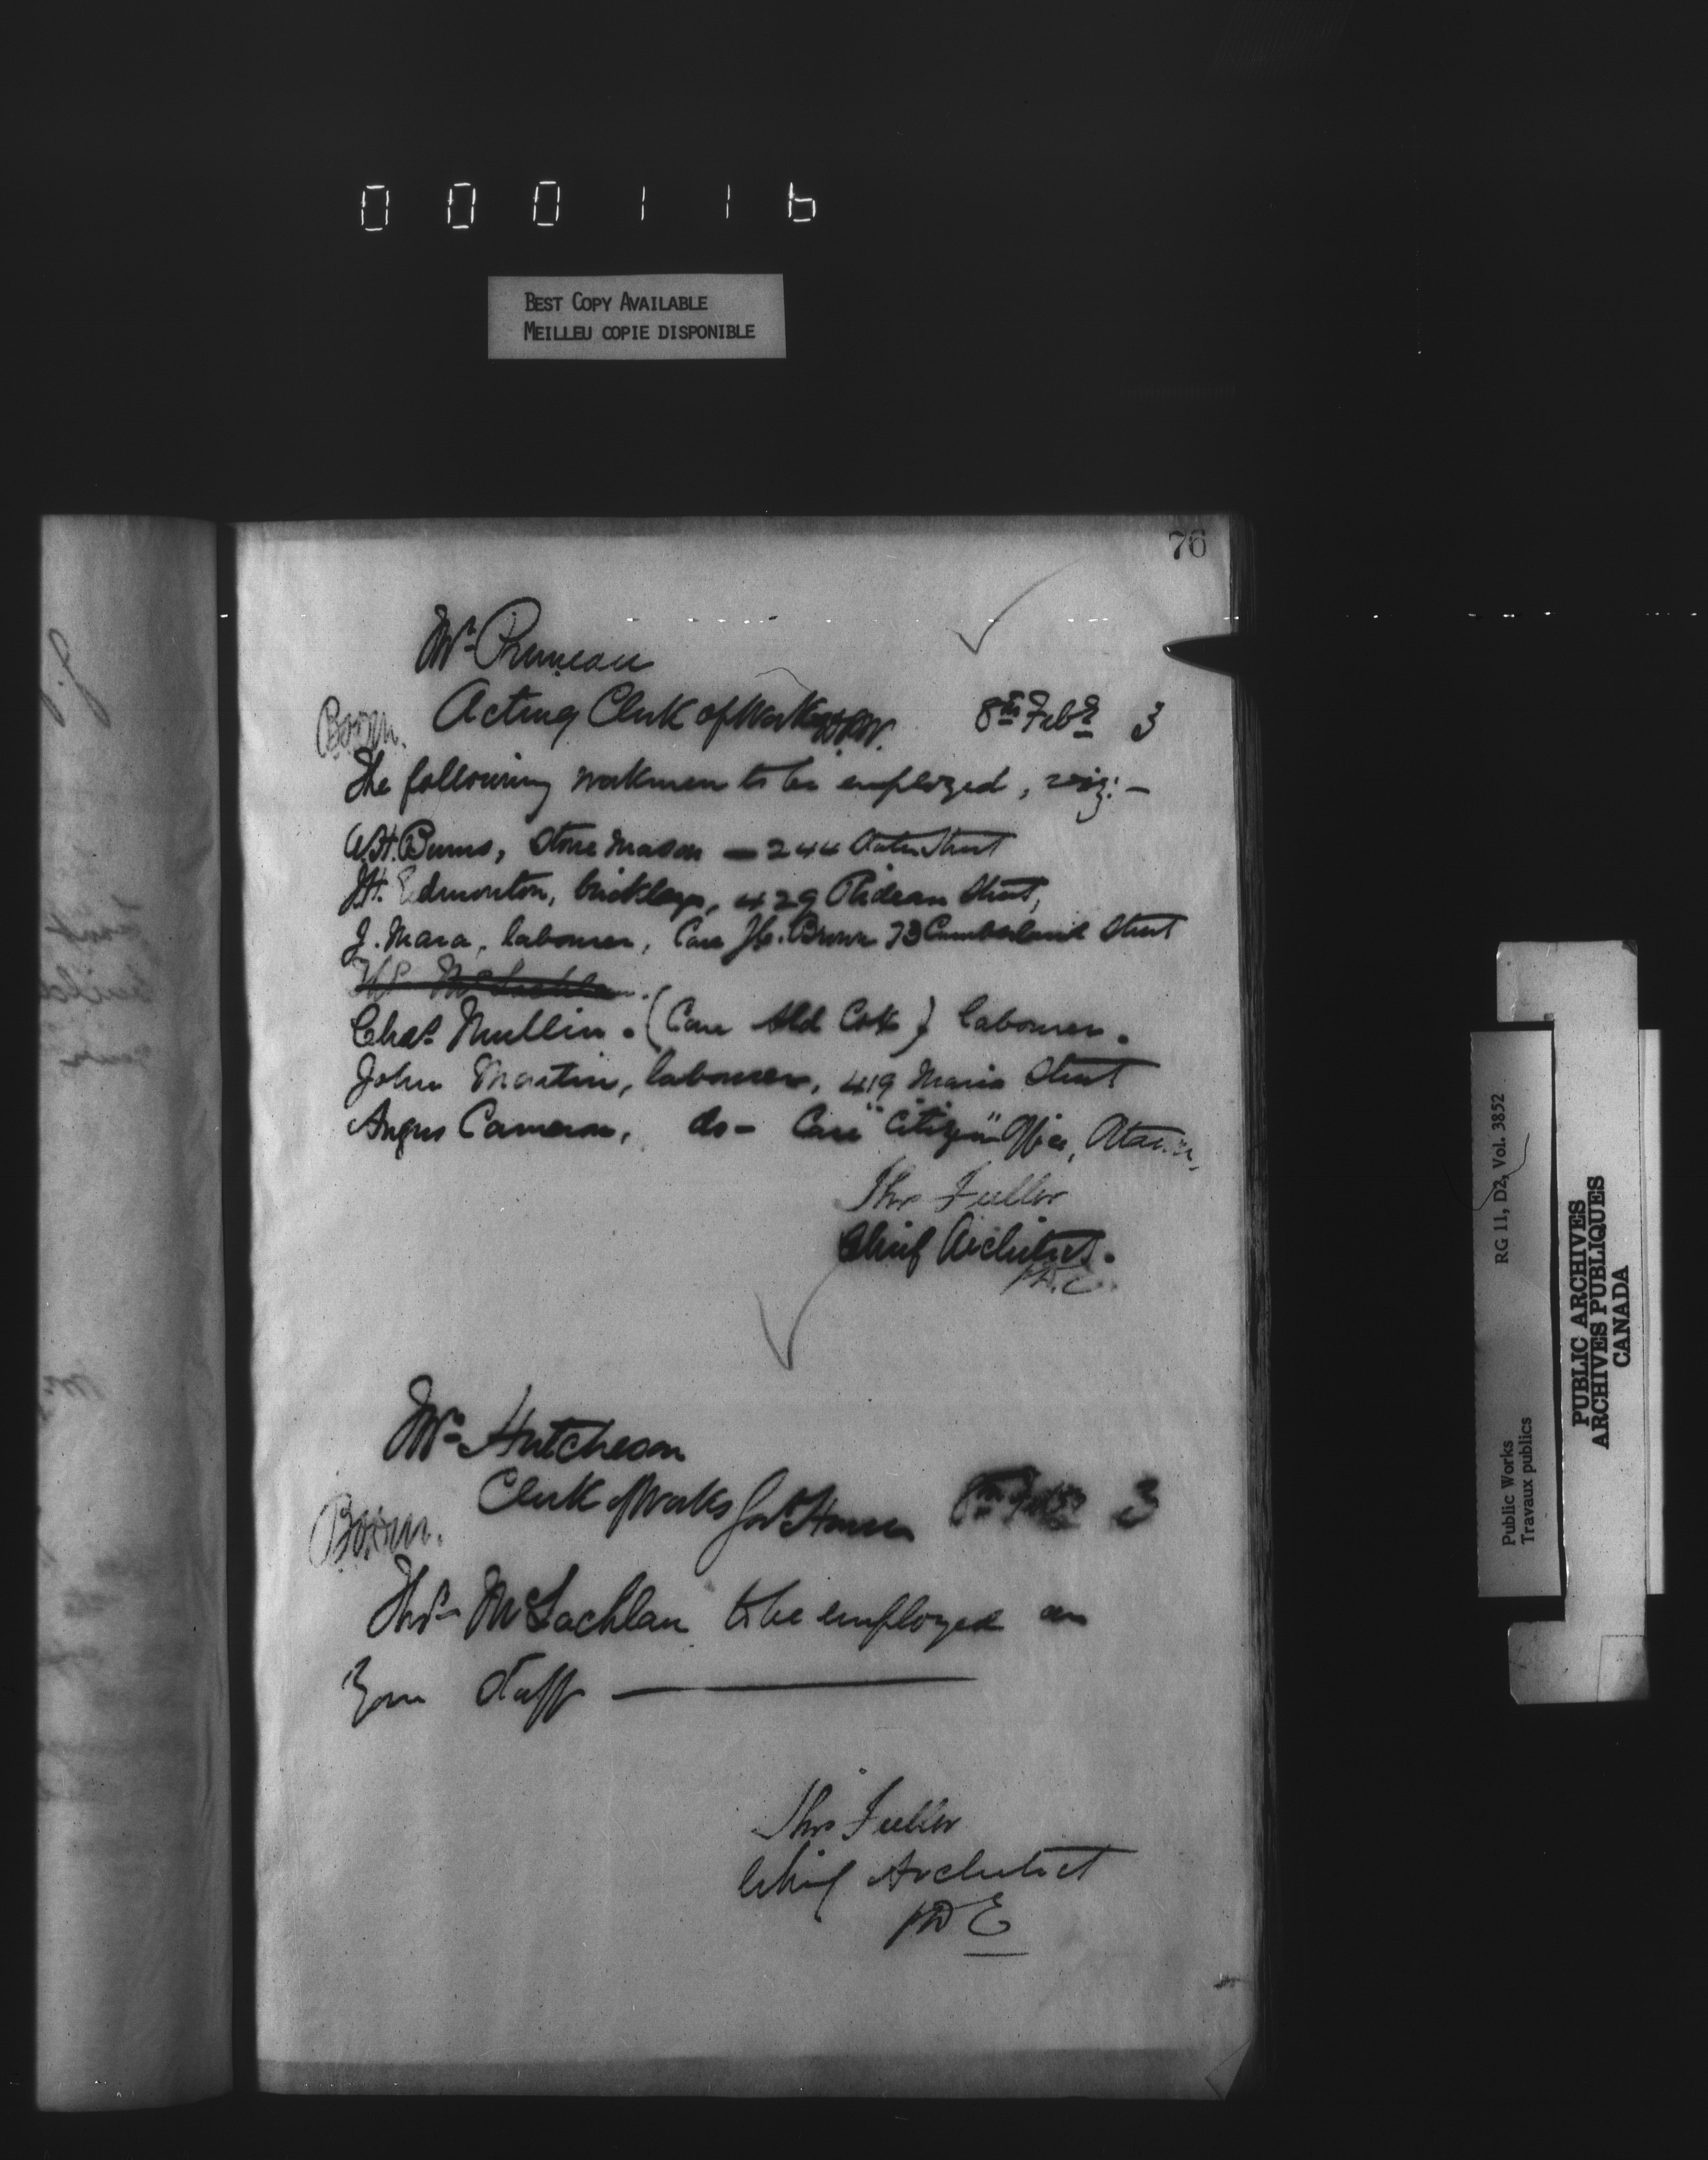 000116
BEST COPY AVAILABLE
MEILLEU COPIE DISPONIBLE
76
Mr Pruneau
Acting Clerk of Works 8th Feby 3
The following workmen to be employed, viz:-
W.H. Burns, Stone Mason - 244 Street
J.H. Edmonton, bricklayer, 429 Rideau Street,
J. Mara, labourer, Care Brown 73 Cumberland Street
Chas. Mullin. (Care Ald Cox) labourer.
John Martin, labourer, 419 Maria Street
Angus Cameron, do - Care "Citizen" Office, Ottawa,
Thos Fuller
Chief Architect.
Mr Hutcheson
Clerk of Works Govt House 8th Feby 3
Thos McLachlan to be employed on
Your Staff
Thos Fuller
Chief Architect
DE
RG 11, D2, Vol. 3852
Public Works
Travaux publics
PUBLIC ARCHIVES
ARCHIVES PUBLIQUES
CANADA